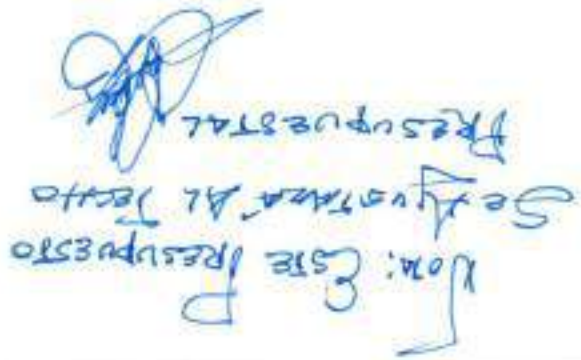 Nota: Este Presupuesto
Se Ajustará al Techo
Presupuestal